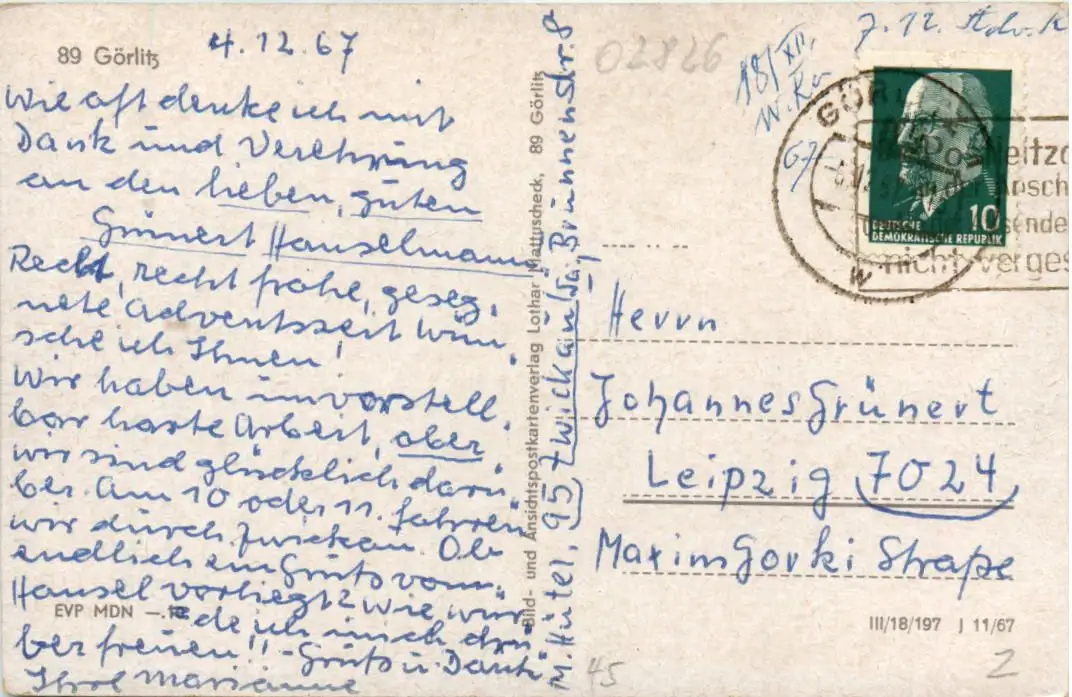 89 Görlitz
4.12.67
Wie oft denke ich mit
Dank und Verehrung
an den lieben, guten
Grünert Hanselmann
Recht, recht frohe, geseg-
nete Adventszeit wün-
sche ich Ihnen!
Wir haben unvorstell-
bar harte Arbeit, aber
wir sind glücklich darü-
ber. Am 10 oder 11. fahren
wir durch Zwickau. Ob
endlich ein Gruß vom
Hansel vorliegt? Wie wür-
de ich mich drü-
ber freuen!! - Gruß u. Dank
Ihre Marianne
EVP MDN
Bild- und Ansichtspostkartenverlag Lothar Mattuscheck, 89 Görlitz
M. Hütel, 95 Zwickau/Sa, Brunnenstr. 8
02826
18/XII.
W. Kv
67
7.12.
GÖRLITZ
W
Postleitzahl
in der Ansch
sende
nicht verges
10
DEUTSCHE
DEMOKRATISCHE REPUBLIK
Herrn
Johannes Grünert
Leipzig 7024
Maxim Gorki Straße
III/18/197 J 11/67
45
2